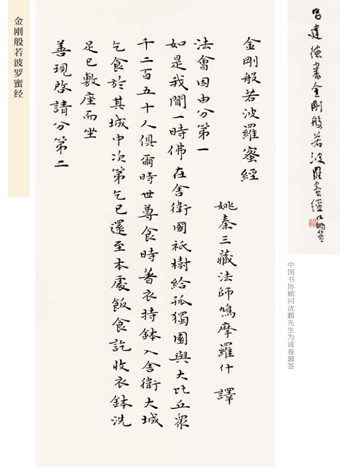 金刚般若波罗蜜经
吕建德书金刚般若波罗蜜经
中国书协顾问沈鹏先生为该卷题签
金剛般若波羅蜜經
姚秦三藏法師鳩摩羅什譯
法會因由分第一
如是我聞一時佛在舍衛國祇樹給孤獨園與大比丘衆
千二百五十人俱爾時世尊食時著衣持鉢入舍衛大城
乞食於其城中次第乞已還至本處飯食訖收衣鉢洗
足已敷座而坐
善現啓請分第二